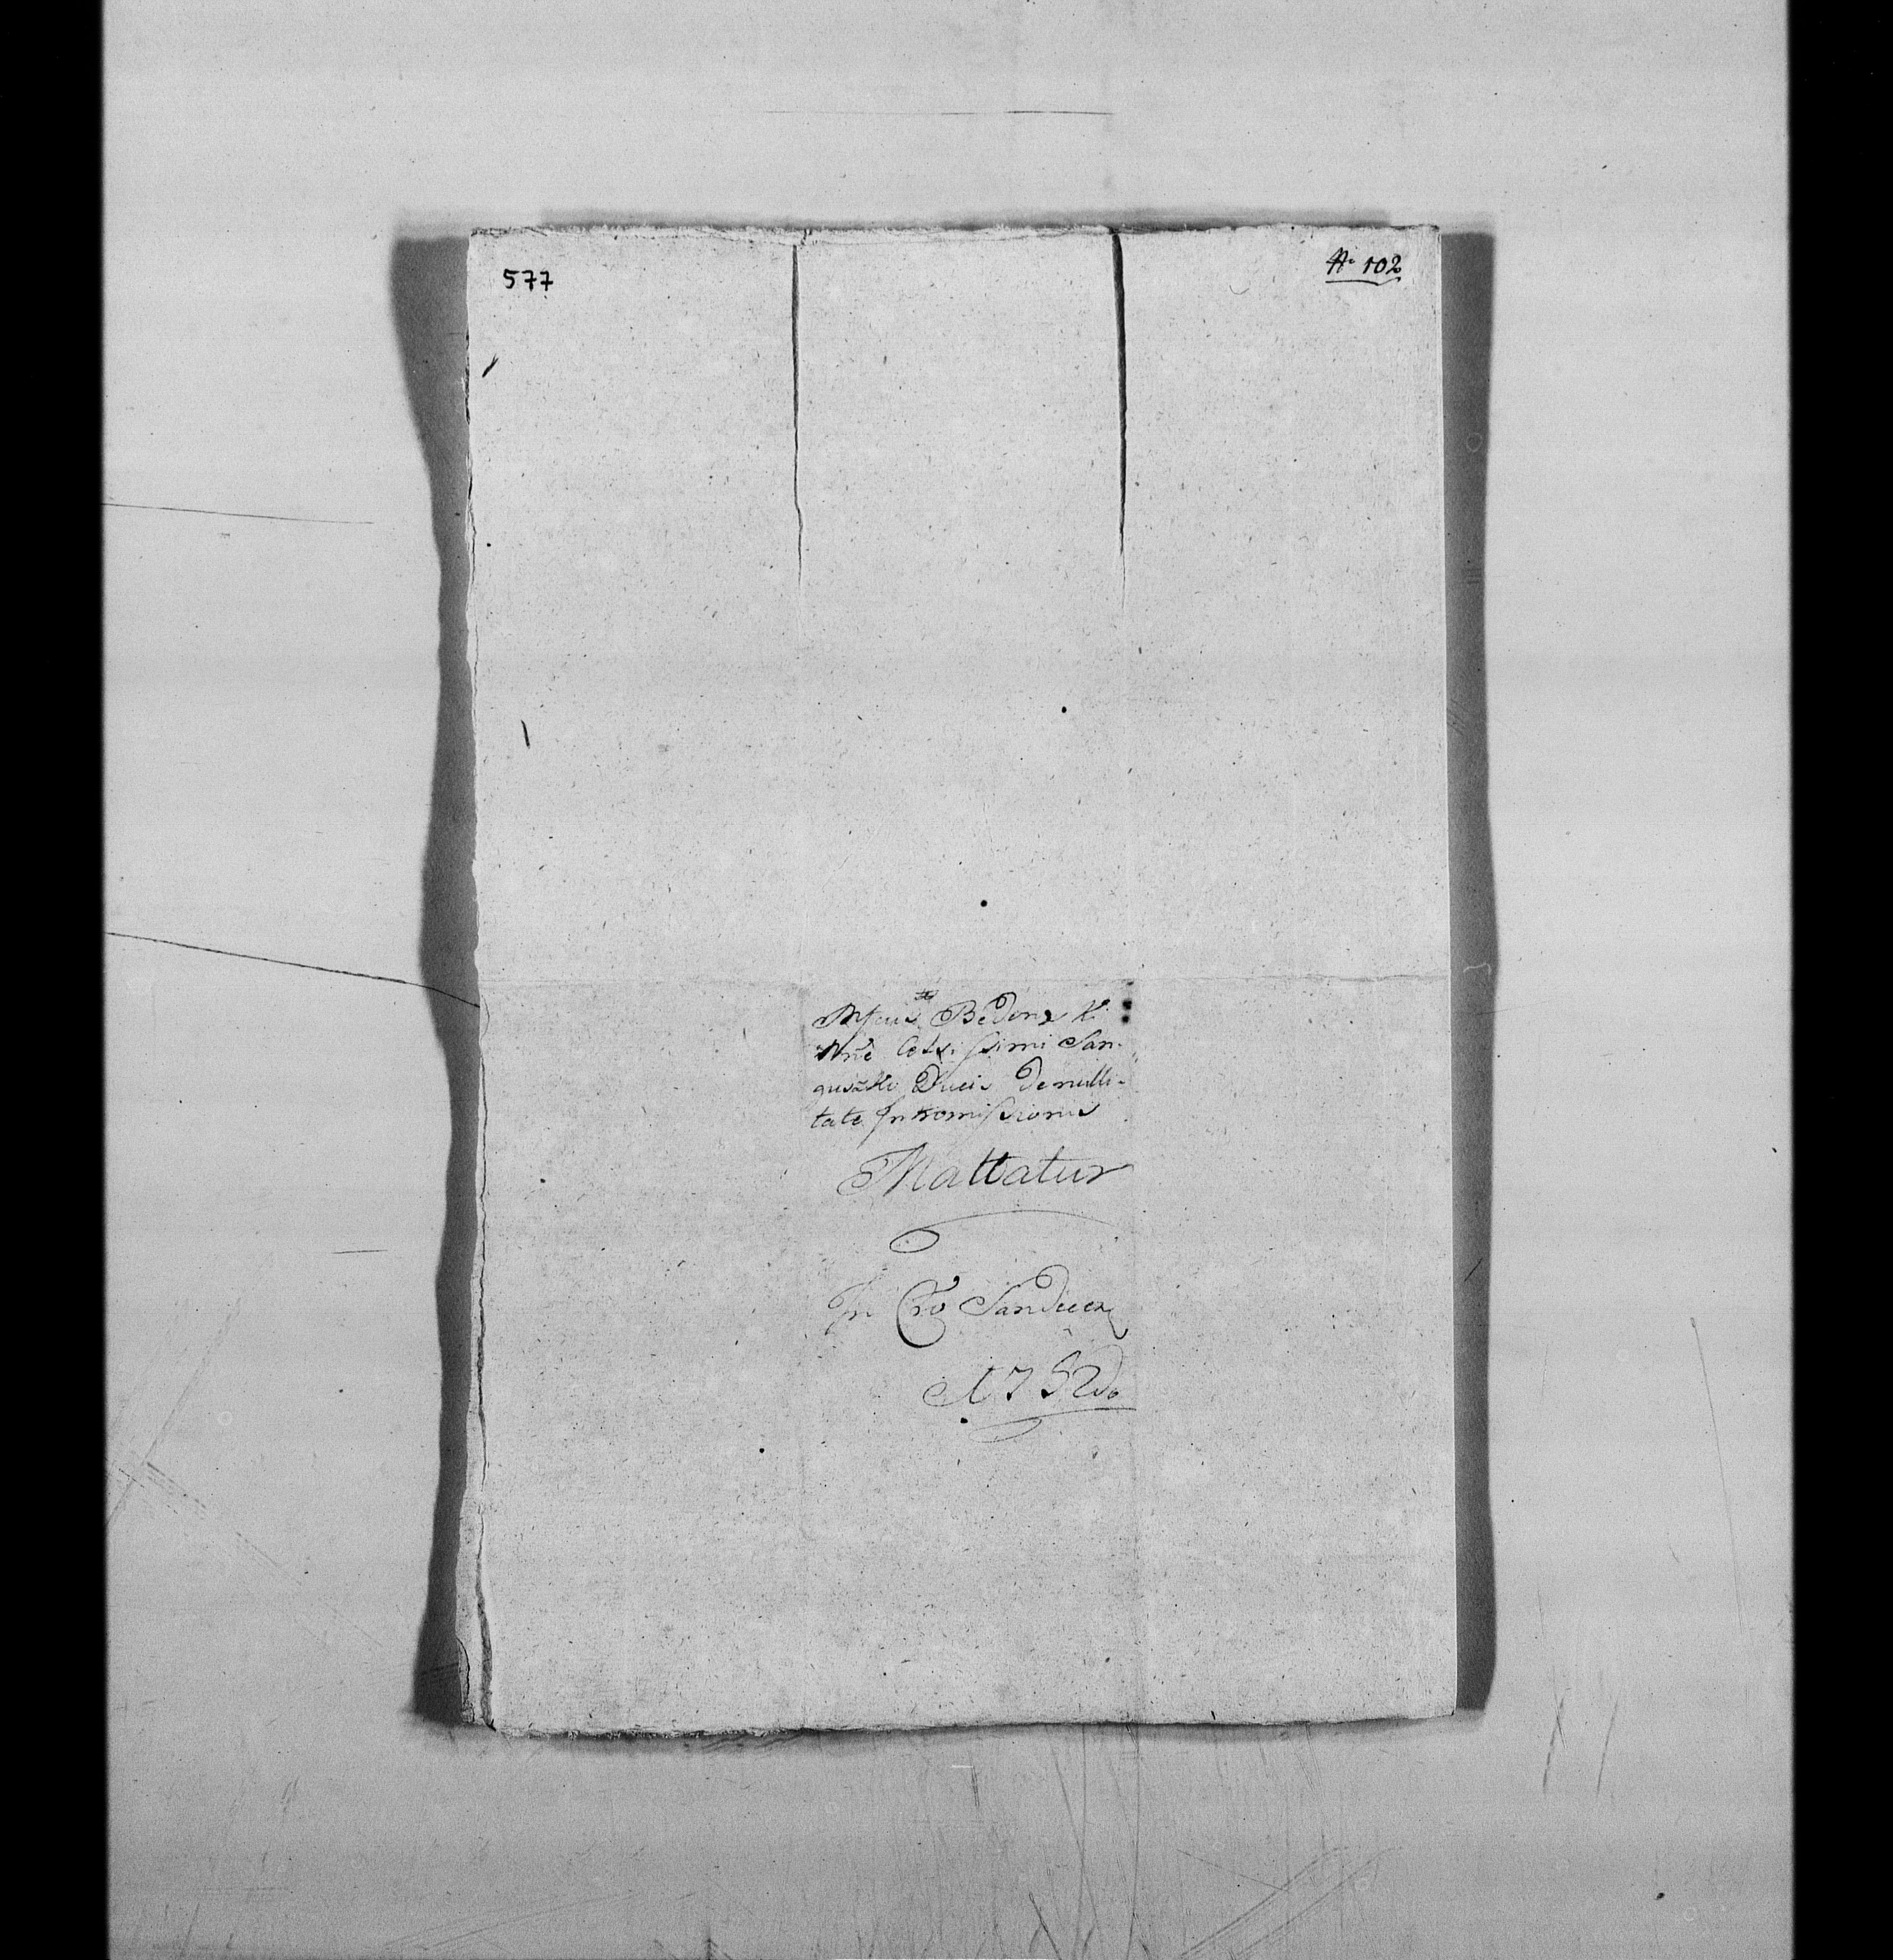 577
N. 102
Bedonz
Celsissimi San-
guszki Ducis de nulli-
tate Intromissionis
Mattatur
In Cro Sandecen
1752do